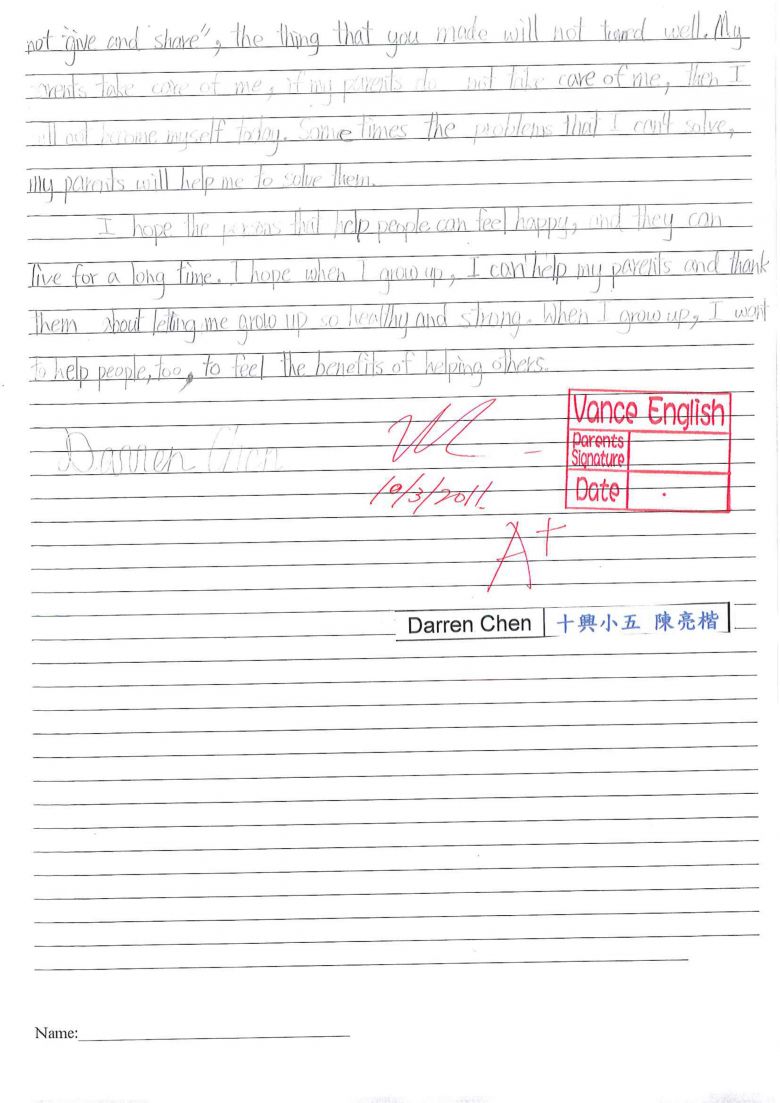 not "give and share", the thing that you made will not turnd well. My
parents take care of me, if my parents do not take care of me, then I
will not become myself today. Sometimes the problems that I can't solve,
my parents will help me to solve them.
I hope the persons that help people can feel happy, and they can
live for a long time. I hope when I grow up, I can help my parents and thank
them about letting me grow up so healthy and strong. When I grow up, I want
to help people, too, to feel the benefits of helping others.
Vance English
Parents
Signature
Darren Chen
10/3/2011.
Date
A+
Darren Chen 十興小五 陳亮楷
Name: